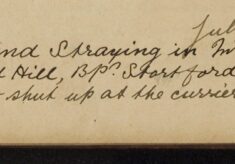 Jul
ind Straying in
d Hill, BPs. Stortford
shut up at the currier